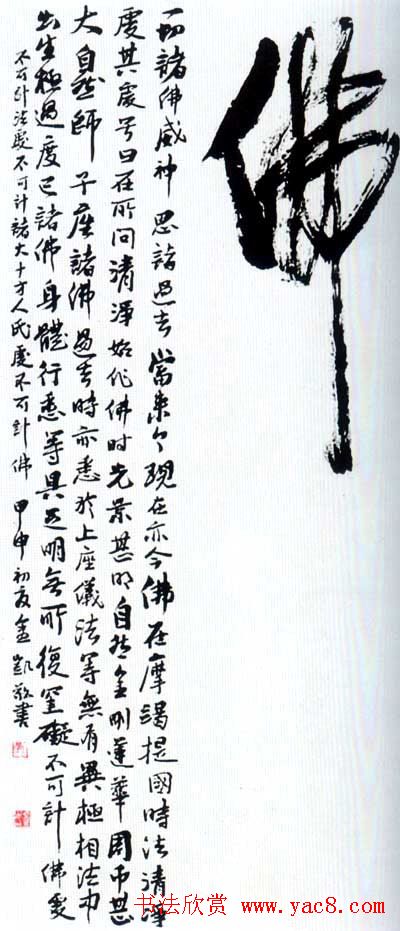 佛
一切諸佛威神恩諸過去當来今現在亦今佛在摩竭提國時法清淨
處其處号曰在所問清淨始作佛时光景甚明自然金剛蓮華周帀甚
大自然師子座諸佛過去時亦悉於上座儀法等無有異極相法中
出生極過度已諸佛身體行悉等具足明無所復罣礙不可計佛處
不可計法處不可計諸大十方人民處不可計佛 甲申初夏金凱敬書
书法欣赏 www.yac8.com